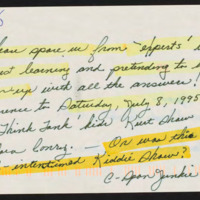 spare us from "experts"
learning and pretending to b
-up with all the answers!
ence to Saturday, July 8, 1995
Think Tank' kids Kurt Shaw
Conroy. — Or was this
-intentioned Kiddie Show?
C-Span Junkie